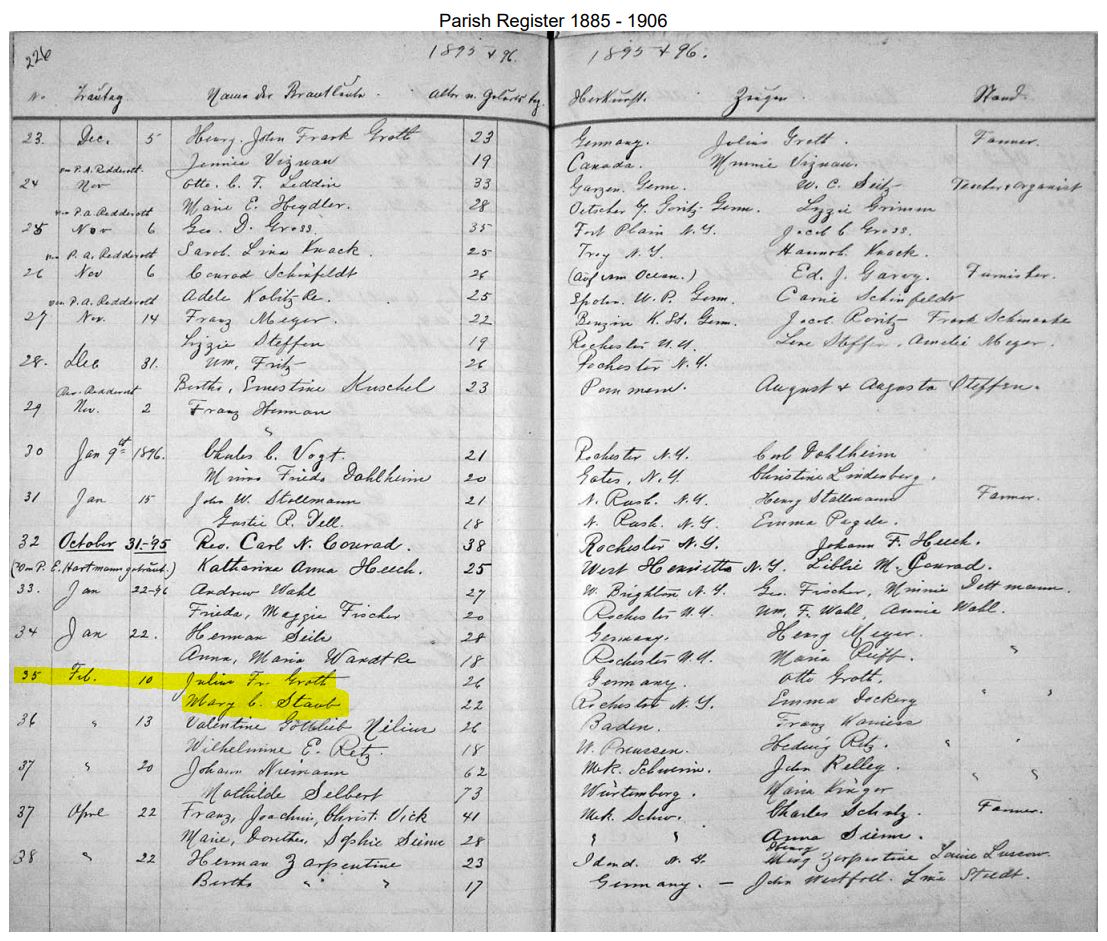 Parish Register 1885 - 1906
226 1895 + 96. 1895 + 96.
No. Trautag Name der Brautleute. Alter u. Geburts Herkunft. Zeugen. Stand.
23. Dec. 5 Henry, John Frank Groth 23 Germany. Julius Groth. Farmer.
Jennie Viznau 19 Canada. Minnie Viznau.
von P. A. Redderoth
24 Nov Otto. C. T. Leddin 33 Germ. W. C. Seitz Teacher & organist
Marie E. Heydler. 28 Germ. Lizzie Grimm
von P. A. Redderoth
25 Nov 6 Geo. D. Gross. 35 Fort Plain N.Y. Jacob C Gross.
Sarah Lina Knack. 25 Troy N.Y. Hannah Knack.
von P. A. Redderoth
26 Nov 6 Conrad Schinfeldt 26 (Auf dem Ocean.) Ed. J. Garvy. Furnisher.
Adele Kolitzke. 25 W. P. Germ. Carrie Schinfeldt
von P. A. Redderoth
27 Nov. 14 Franz Meyer. 22 Germ. Jacob Frank
Lizzie Steffen 19 Rochester N.Y. Lena Steffen, Amelie Meyer.
28. Dec 31. Wm. Fritz 26 Rochester N.Y.
Bertha, Ernestine Kuschel 23 Pommern. August & Augusta Steffen.
Rev. Redderoth
29 Nov. 2 Franz Herman
"
30 Jan 9th 1896. Charles C. Vogt. 21 Rochester N.Y. Carl Dahlheim
Minna Frieda Dahlheim 20 Gates, N.Y. Christine Lindenberg.
31 Jan 15 John W. Stollmann 21 N. Rush. N.Y. Henry Stallmann Farmer.
Gustie R. Dell. 18 N. Rush. N.Y. Emma Pagels.
32 October 31-95 Rev. Carl N. Conrad. 38 Rochester N.Y. Johann F. Heech.
(Von P. E. Hartmann getraut.) Katharina Anna Heech. 25 West Henrietta N.Y. Libbie M. Conrad.
33. Jan 22-96 Andrew Wahl 27 W. Brighton N.Y. Geo. Fischer, Minnie Dettmann.
Frieda, Maggie Fischer 20 Rochester N.Y. Wm. F. Wahl, Annie Wahl.
34 Jan 22. Herman Seils 28 Germany. Henry Meyer.
Anna, Maria Wandtke 18 Rochester N.Y. Maria Reiff. "
35 Feb. 10 Julius Fr. Groth 26 Germany. Otto Groth. "
Mary C. Staub 22 Rochester N.Y. Emma Dockery
36 " 13 Valentine Gottlieb Nilius 26 Baden. Franz
Wilhelmine E. Retz 18 W. Preussen. Hedwig Retz. " "
37 " 20 Johann Niemann 62 Mek. Schwerin. John Kelley. " "
Mathilde Selbert 73 Würtemberg. Maria Krüger
37 April 22 Franz, Joachim, Christ. Vick 41 Mek. Schw. Charles Schulz. Farmer.
Marie, Dorothea, Sophie Sieme 28 " " Anna Sieme.
38 " 22 Herman Zarpentine 23 N.Y. Henry Zarpentine Louise Luscow.
Bertha " " 17 Germany. - John Westfall. Lina Stedt.